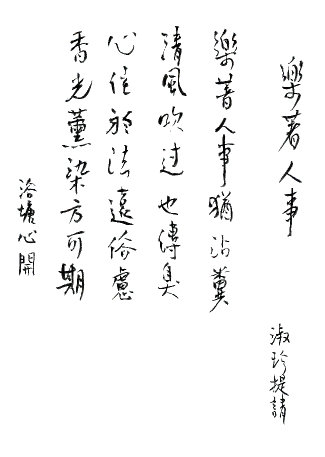 樂著人事
淑玲提請
樂著人事猶沾糞
清風吹过也縛臭
心住於法遠俗慮
香光薰染方可期
浴塘心開